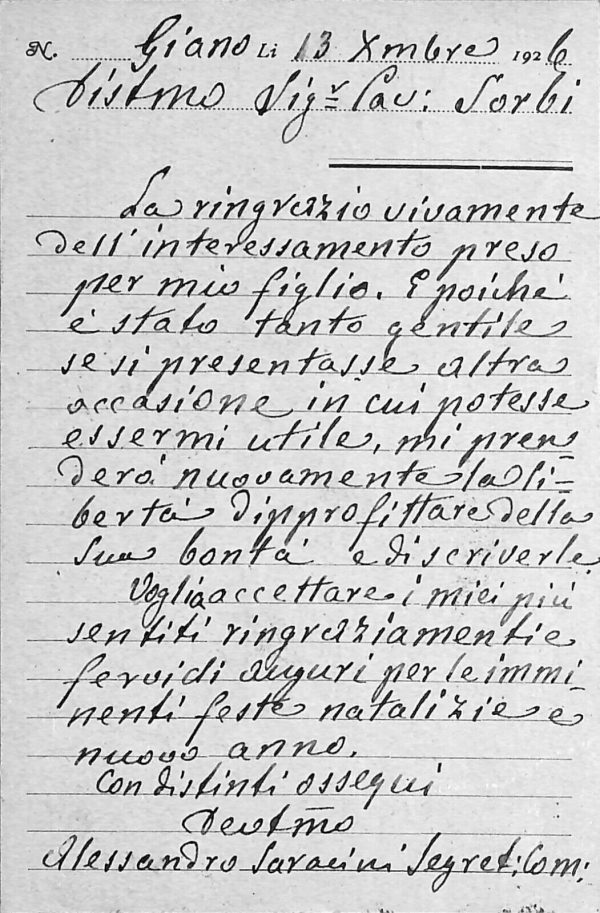 N. Giano Li 13 Xmbre 1926
Distmo Sigr Cav: Sorbi
La ringrazio vivamente
dell'interessamento preso
per mio figlio. E poiché
é stato tanto gentile
se si presentasse altra
occasione in cui potesse
essermi utile, mi pren=
derà nuovamente la li=
bertà d'ipprofittare della
Sua bontà e di scriverle.
Voglia accettare i miei più
sentiti ringraziamenti e
fervidi auguri per le immi
nenti feste natalizie e
nuovo anno.
Con distinti ossequi
Devotmo
Alessandro Saracini Segret: Com: